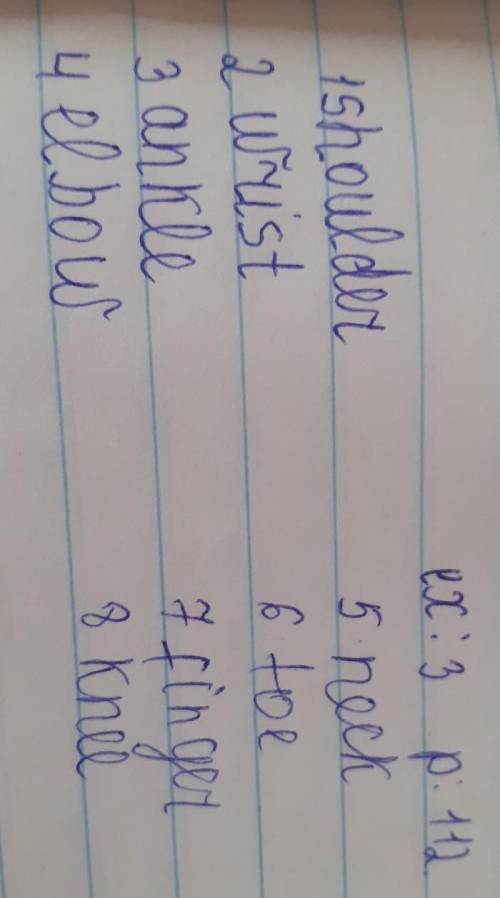 ex: 3 p. 112.
1 shoulder 5 neck
2 wrist 6 toe
3 ankle 7 finger
4 elbow 8 knee